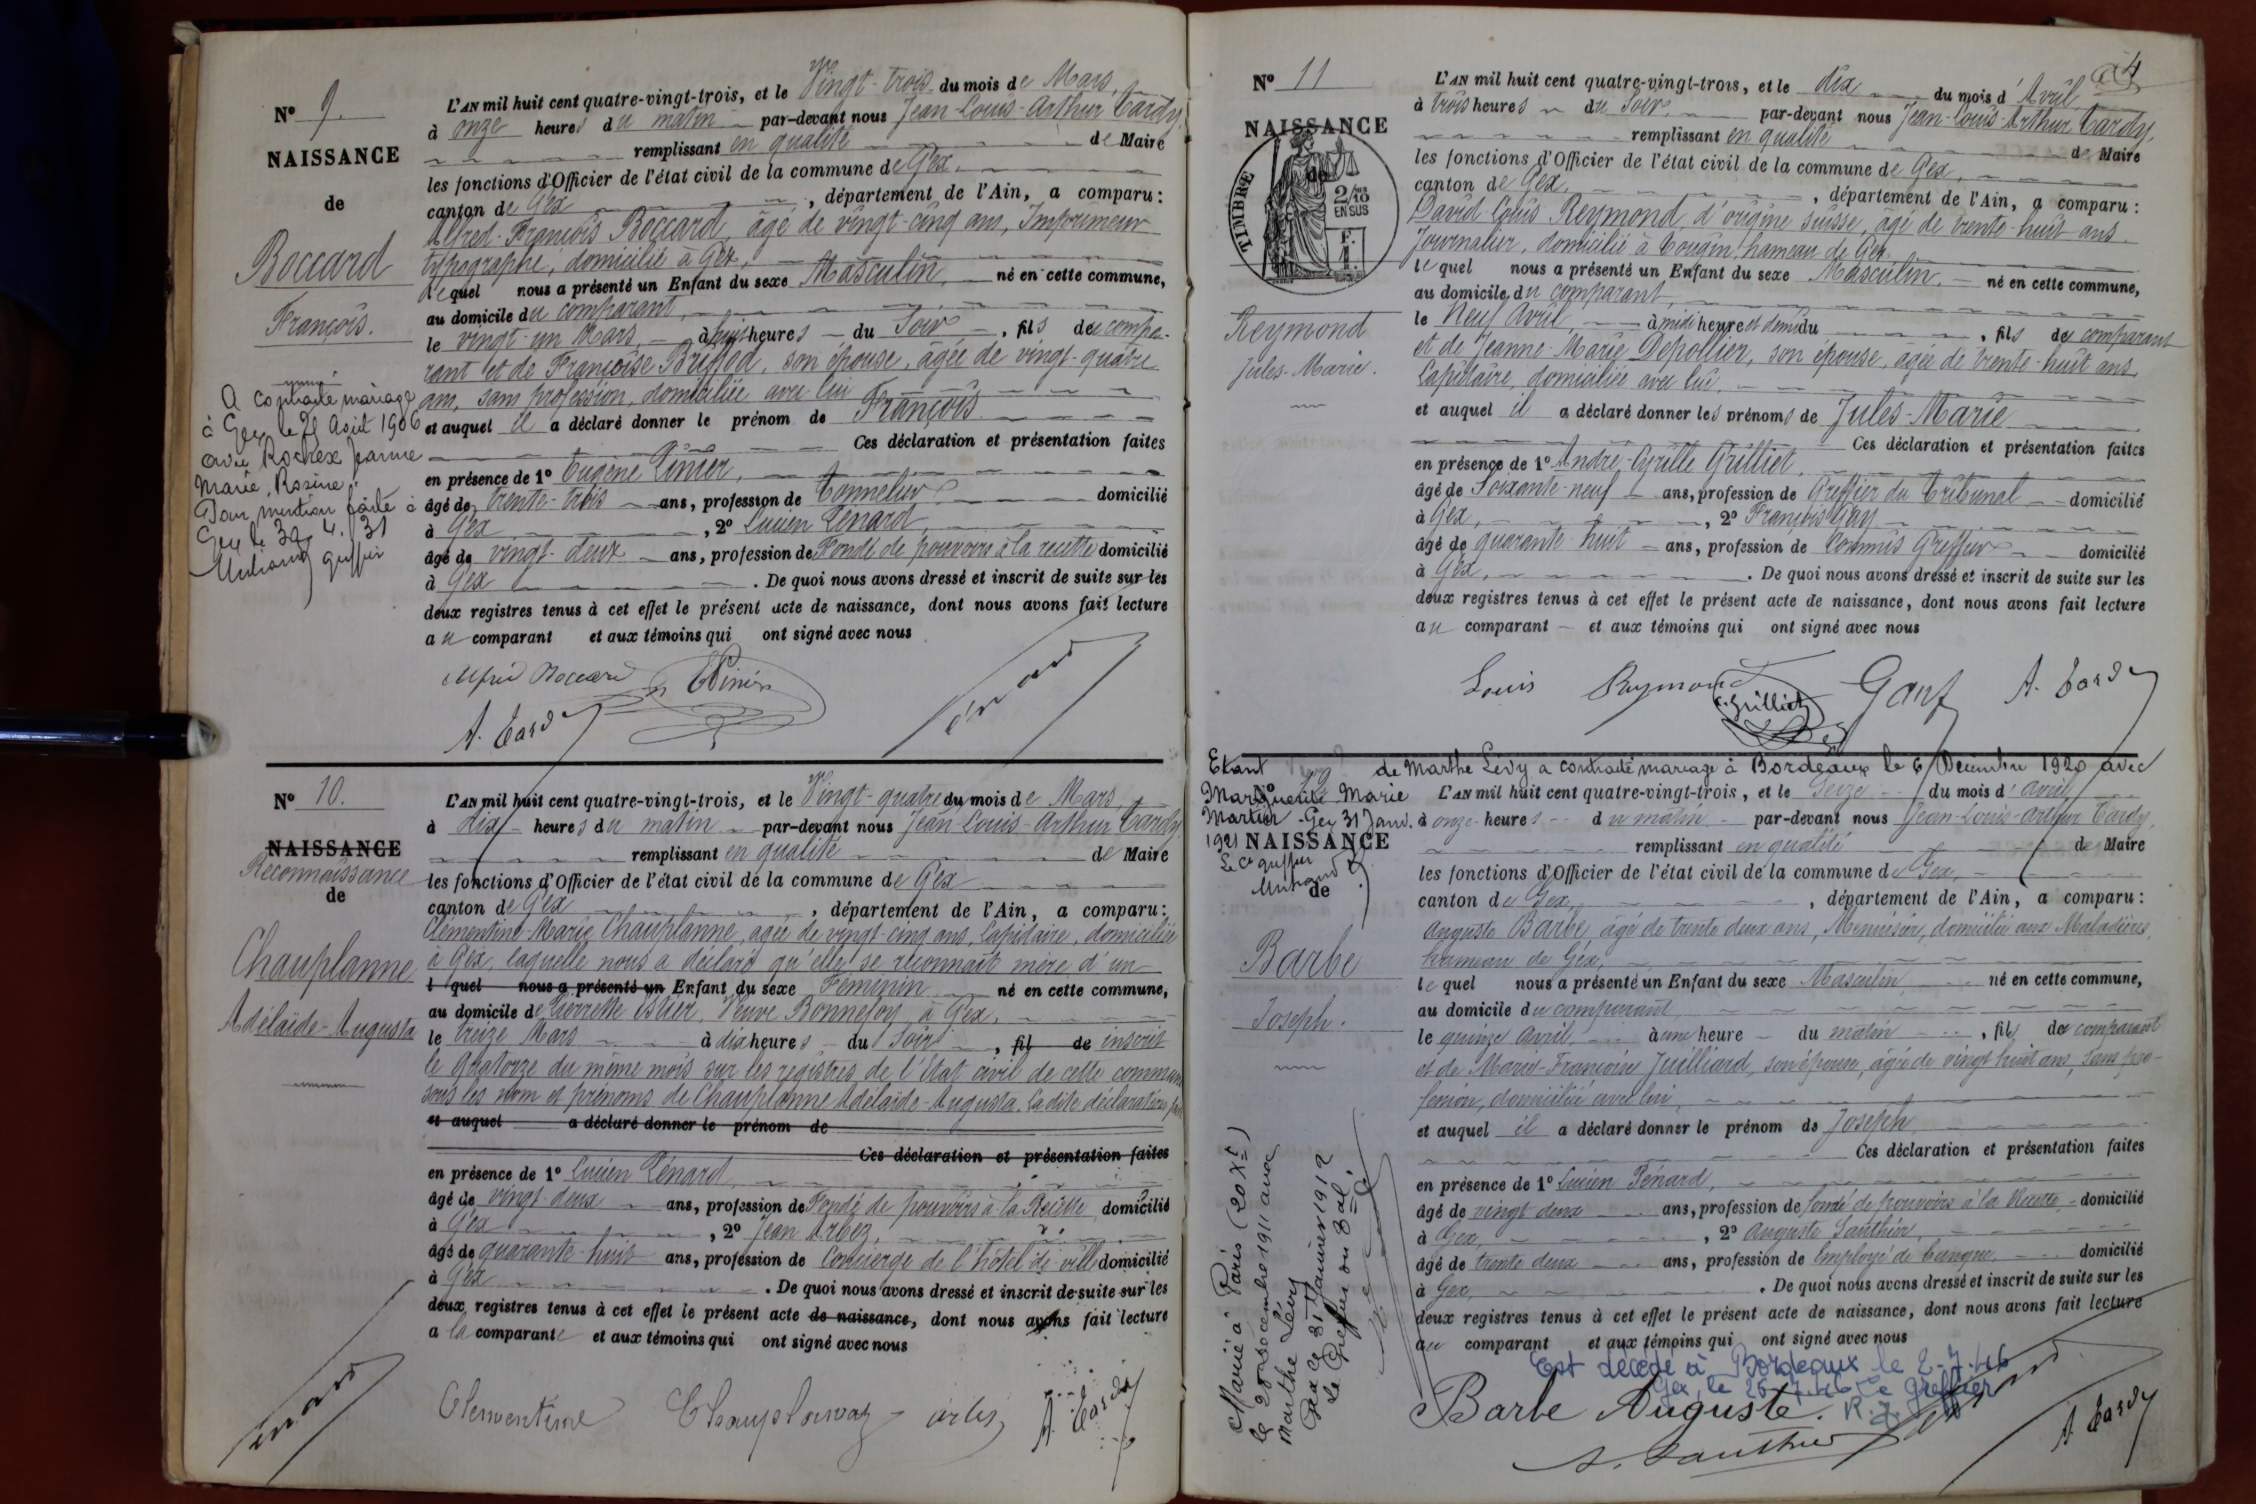 Nº 9.
NAISSANCE
de
Boccard
François.
A contracté mariage
à Gex le 21 Août 1906
avec Rochex Jeanne
Marie, Rosine.
Pour mention faite à
Gex le 30. 4. 31
greffier
L'AN mil huit cent quatre-vingt-trois, et le Vingt-trois du mois de Mars,
à onze heures du matin par-devant nous Jean-Louis-Arthur Tardy,
remplissant en qualité de Maire
les fonctions d'Officier de l'état civil de la commune de Gex,
canton de Gex, département de l'Ain, a comparu:
Alfred-François Boccard, âgé de vingt-cinq ans, Imprimeur
typographe, domicilié à Gex,
lequel nous a présenté un Enfant du sexe Masculin, né en cette commune,
au domicile du comparant,
le vingt-un Mars, à huit heures du Soir, fils du compa-
rant et de Françoise Briffod, son épouse, âgée de vingt-quatre
ans, sans profession, domiciliée avec lui
et auquel il a déclaré donner le prénom de François
Ces déclaration et présentation faites
en présence de 1º Eugène Pinier,
âgé de trente-trois ans, profession de Tonnelier domicilié
à Gex, 2º Lucien Pénard,
âgé de vingt-deux ans, profession de Fondé de pouvoirs à la recette domicilié
à Gex. De quoi nous avons dressé et inscrit de suite sur les
deux registres tenus à cet effet le présent acte de naissance, dont nous avons fait lecture
au comparant et aux témoins qui ont signé avec nous
Alfred Boccard EPinier Pénard
A. Tardy
Nº 10.
NAISSANCE
Reconnaissance
de
Chauplanne
Adélaïde-Augusta
L'AN mil huit cent quatre-vingt-trois, et le Vingt-quatre du mois de Mars,
à dix heures du matin par-devant nous Jean-Louis-Arthur Tardy
remplissant en qualité de Maire
les fonctions d'Officier de l'état civil de la commune de Gex
canton de Gex, département de l'Ain, a comparu:
Clémentine-Marie Chauplanne, âgée de vingt-cinq ans, Lapidaire, domiciliée
à Gex, laquelle nous a déclaré qu'elle se reconnaît mère d'un
l quel nous a présenté un Enfant du sexe Féminin né en cette commune,
au domicile de Pierrette Ostier, Veuve Bonnefoy, à Gex,
le treize Mars à dix heures du Soir, fil de inscrit
le quatorze du même mois sur les registres de l'Etat civil de cette commune
sous les nom et prénoms de Chauplanne Adélaïde-Augusta. La dite déclaration faite
et auquel a déclaré donner le prénom de
Ces déclaration et présentation faites
en présence de 1º Lucien Pénard,
âgé de vingt-deux ans, profession de Fondé de pouvoirs à la Recette domicilié
à Gex, 2º Jean Arbez,
âgé de quarante-huit ans, profession de Concierge de l'hôtel de ville domicilié
à Gex. De quoi nous avons dressé et inscrit de suite sur les
deux registres tenus à cet effet le présent acte de naissance, dont nous avons fait lecture
a la comparante et aux témoins qui ont signé avec nous
Pénard Clementine A. Tardy
4
Nº 11
NAISSANCE
de
TIMBRE
2/10
EN SUS
Reymond
Jules-Marie.
L'AN mil huit cent quatre-vingt-trois, et le dix du mois d'Avril
à trois heures du Soir, par-devant nous Jean-Louis-Arthur Tardy,
remplissant en qualité de Maire
les fonctions d'Officier de l'état civil de la commune de Gex,
canton de Gex, département de l'Ain, a comparu:
David Louis Reymond, d'origine suisse, âgé de trente-huit ans
Journalier, domicilié à Tougin, hameau de Gex
lequel nous a présenté un Enfant du sexe Masculin, né en cette commune,
au domicile du comparant,
le Neuf Avril, à midi heure et demi du, fils du comparant
et de Jeanne-Marie Depollier, son épouse, âgée de trente-huit ans,
Lapidaire, domiciliée avec lui,
et auquel il a déclaré donner les prénoms de Jules-Marie
Ces déclaration et présentation faites
en présence de 1º André-Cyrille Grilliet,
âgé de Soixante-neuf ans, profession de Greffier du Tribunal domicilié
à Gex, 2º François Gay
âgé de quarante-huit ans, profession de Commis Greffier domicilié
à Gex. De quoi nous avons dressé et inscrit de suite sur les
deux registres tenus à cet effet le présent acte de naissance, dont nous avons fait lecture
au comparant et aux témoins qui ont signé avec nous
Louis Reymond Grilliet Gay A. Tardy
Etant de Marthe Lévy a contracté mariage à Bordeaux le 6 Décembre 1920 avec
Marguerite Marie
Martin - Gex 31 Janv.
1921
Le Cs greffier
Nº
NAISSANCE
de
Barbe
Joseph.
Marié à Paris (20 Xt)
le 20 décembre 1911 avec
Marthe Lévy
Gex ce 31 Janvier 1912
Le Greffier du Bal
L'AN mil huit cent quatre-vingt-trois, et le Seize du mois d'avril
à onze heures du matin par-devant nous Jean-Louis-Arthur Tardy,
remplissant en qualité de Maire
les fonctions d'Officier de l'état civil de la commune de Gex,
canton de Gex, département de l'Ain, a comparu:
Auguste Barbe, âgé de trente deux ans, Menuisier, domicilié aux Maladières,
hameau de Gex,
lequel nous a présenté un Enfant du sexe Masculin, né en cette commune,
au domicile du comparant,
le quinze Avril, à une heure du matin, fils du comparant
et de Marie-Françoise Juilliard, son épouse, âgée de vingt huit ans, sans pro-
fession, domiciliée avec lui,
et auquel il a déclaré donner le prénom de Joseph
Ces déclaration et présentation faites
en présence de 1º Lucien Pénard,
âgé de vingt deux ans, profession de fondé de pouvoirs à la Recette domicilié
à Gex, 2º Auguste Lauthier,
âgé de trente deux ans, profession de Employé de banque domicilié
à Gex. De quoi nous avons dressé et inscrit de suite sur les
deux registres tenus à cet effet le présent acte de naissance, dont nous avons fait lecture
au comparant et aux témoins qui ont signé avec nous
Est décédé à Bordeaux le 2-7-46
Gex, le 26-7-46 Le Greffier
Barbe Auguste. Pénard
A. Lauthier A. Tardy